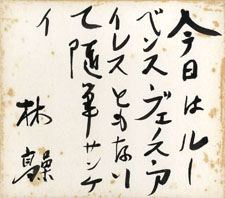 今日はルー
ベンス・ヴェノス・ア
イレスともない
て随筆サンケ
イ
林髞